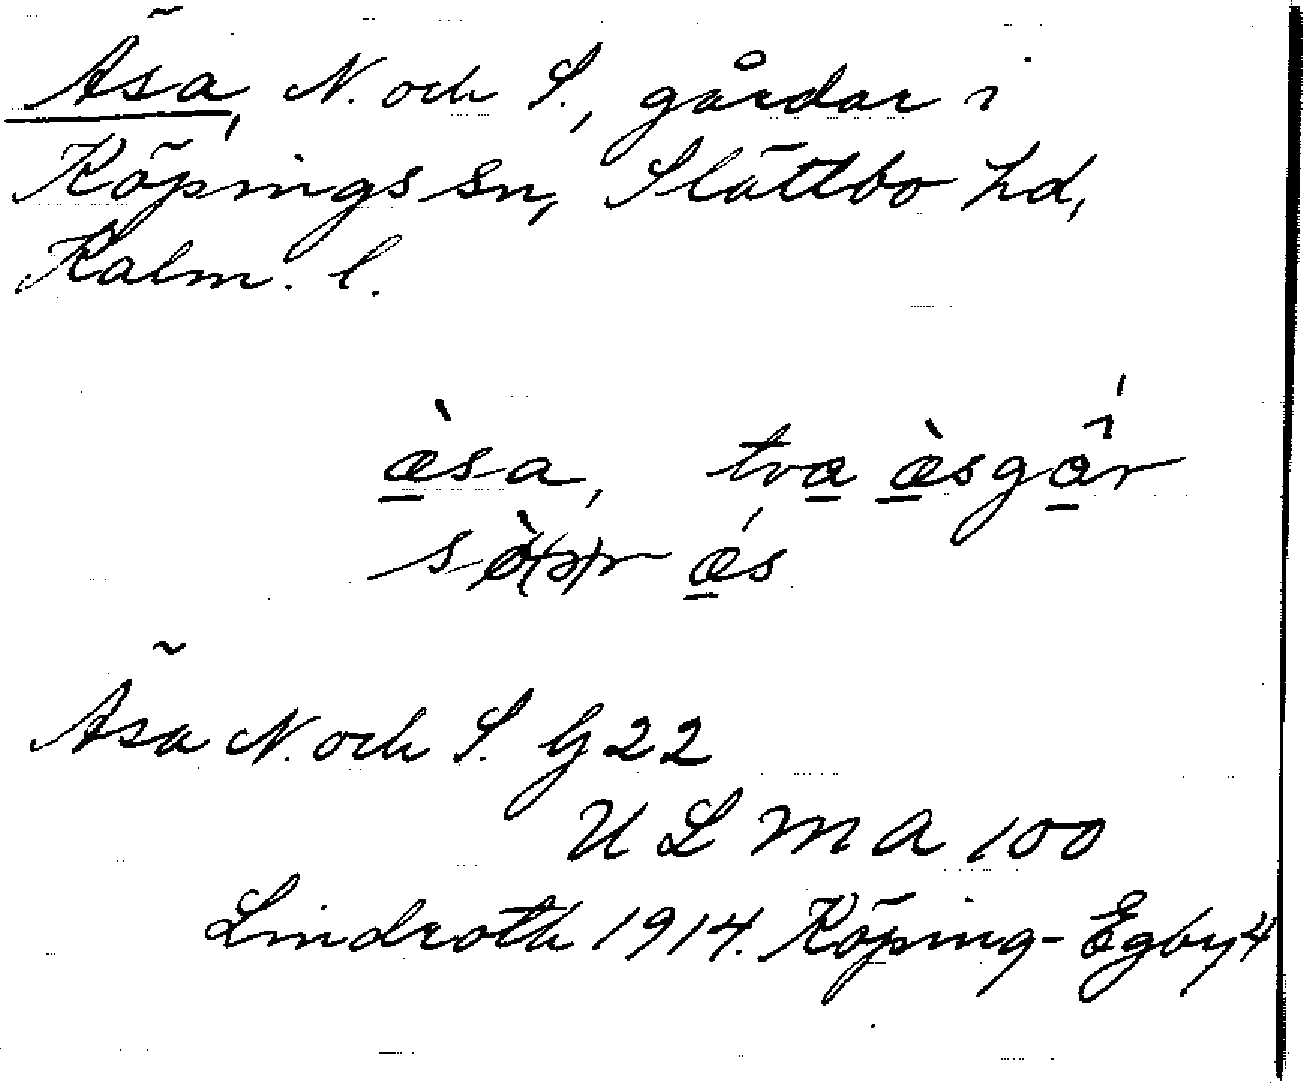 Äsa, N. och S., gårdar i
Köpings sn, Slättbo hd,
Kalm. l.
æ̀sa, tva æ̀sgár
ǽs
Äsa N. och S. G 22
ULMA 100
Lindroth 1914. Köping-Egby 4